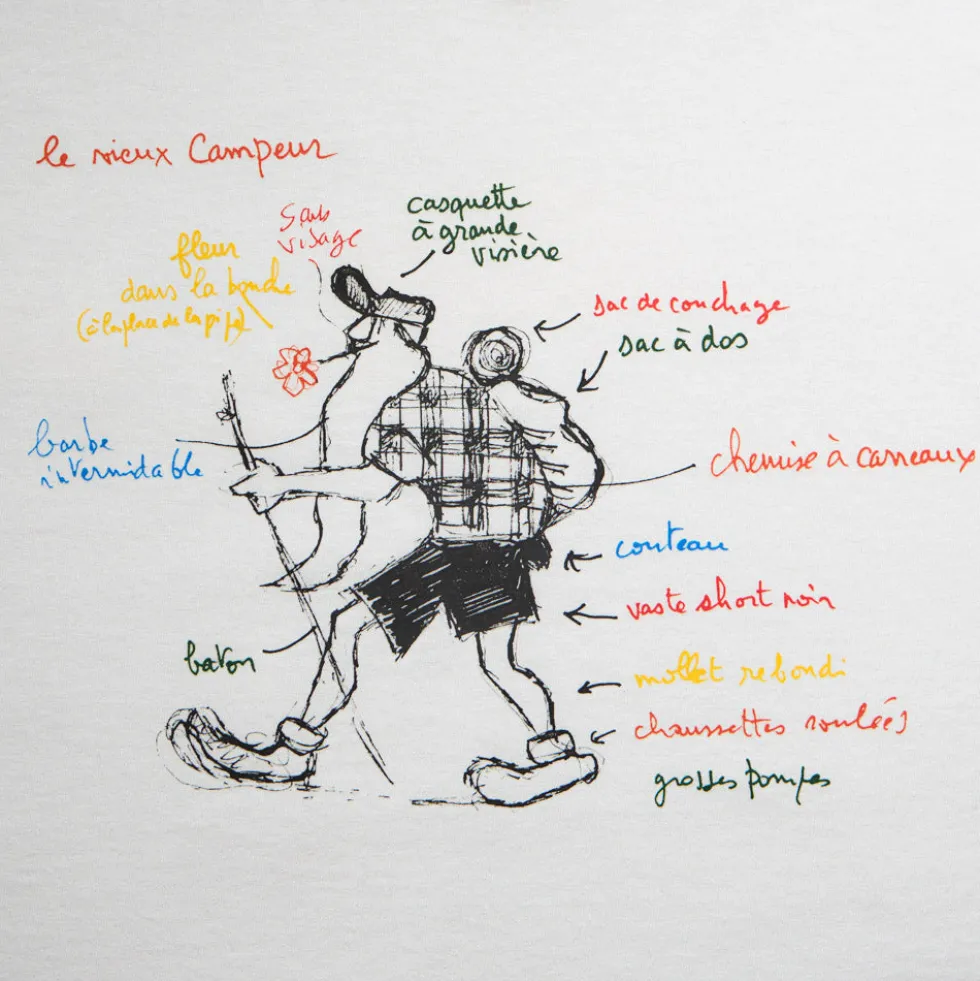 le vieux Campeur
sans
visage
casquette
à grande
visière
fleur
dans la bouche
(à la place de la pipe)
sac de couchage
sac à dos
barbe
intermidable
chemise à carreaux
couteau
vaste short noir
baton
mollet rebondi
chaussettes roulées
grosses pompes